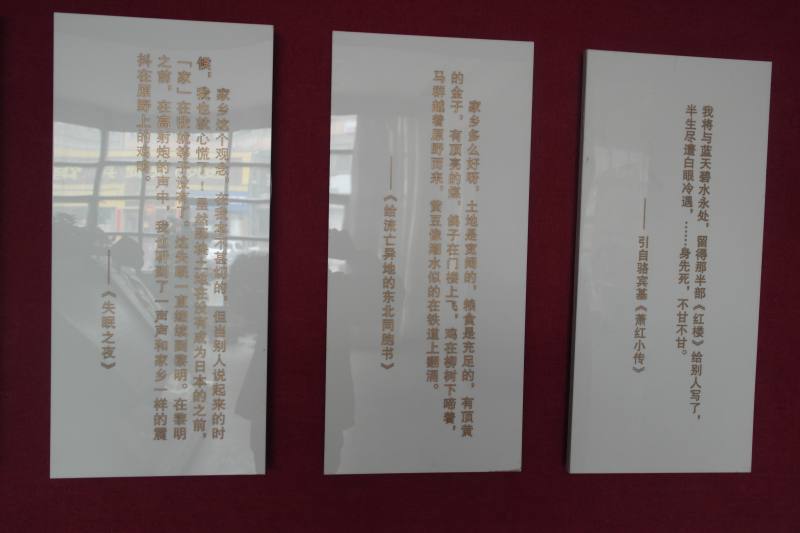 我将与蓝天碧水永处，留得那半部《红楼》给别人写了，
半生尽遭白眼冷遇，……身先死，不甘不甘。
——引自骆宾基《萧红小传》
家乡多么好呀，土地是宽阔的，粮食是充足的，有顶黄
的金子，有顶亮的煤，鸽子在门楼上飞，鸡在柳树下啼着，
马群越着原野而来，黄豆像潮水似的在铁道上翻涌。
——《给流亡异地的东北同胞书》
家乡这个观念，在我本不甚切的，但当别人说起来的时
候，我也就心慌了！虽然那块土地在没有成为日本的之前，
「家」在我就等于没有了。这失眠一直继续到黎明。在黎明
之前，在高射炮的声中，我也听到了一声声和家乡一样的震
抖在原野上的鸡鸣。
——《失眠之夜》